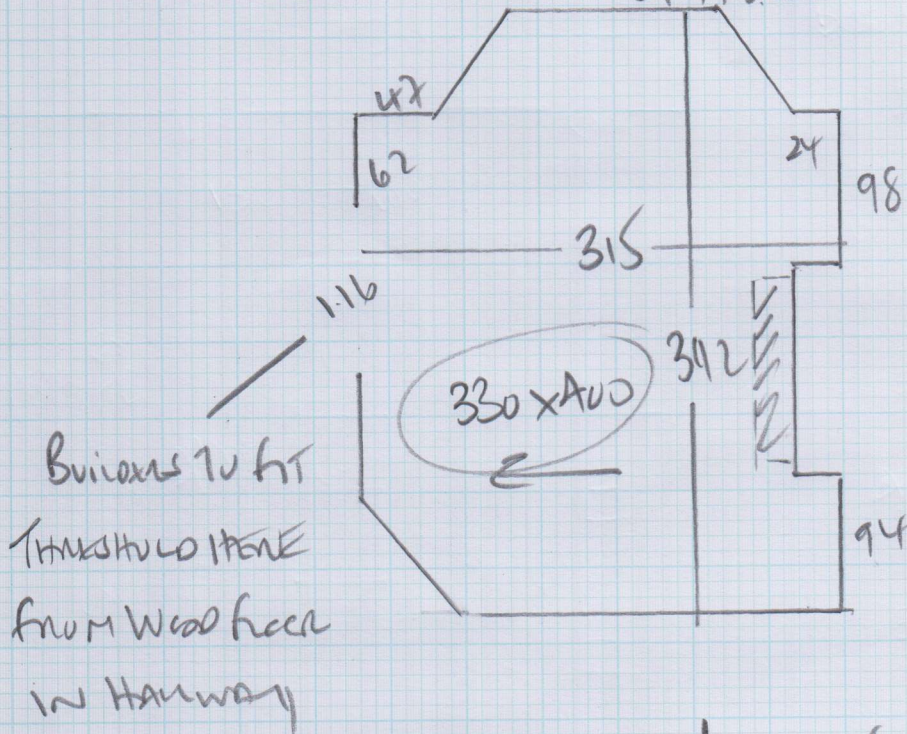 47
62
24
98
315
1.16
342
330 x 400
94
BUILDERS TO FIT
THRESHOLD HERE
FROM WOOD FLOOR
IN HALLWAY